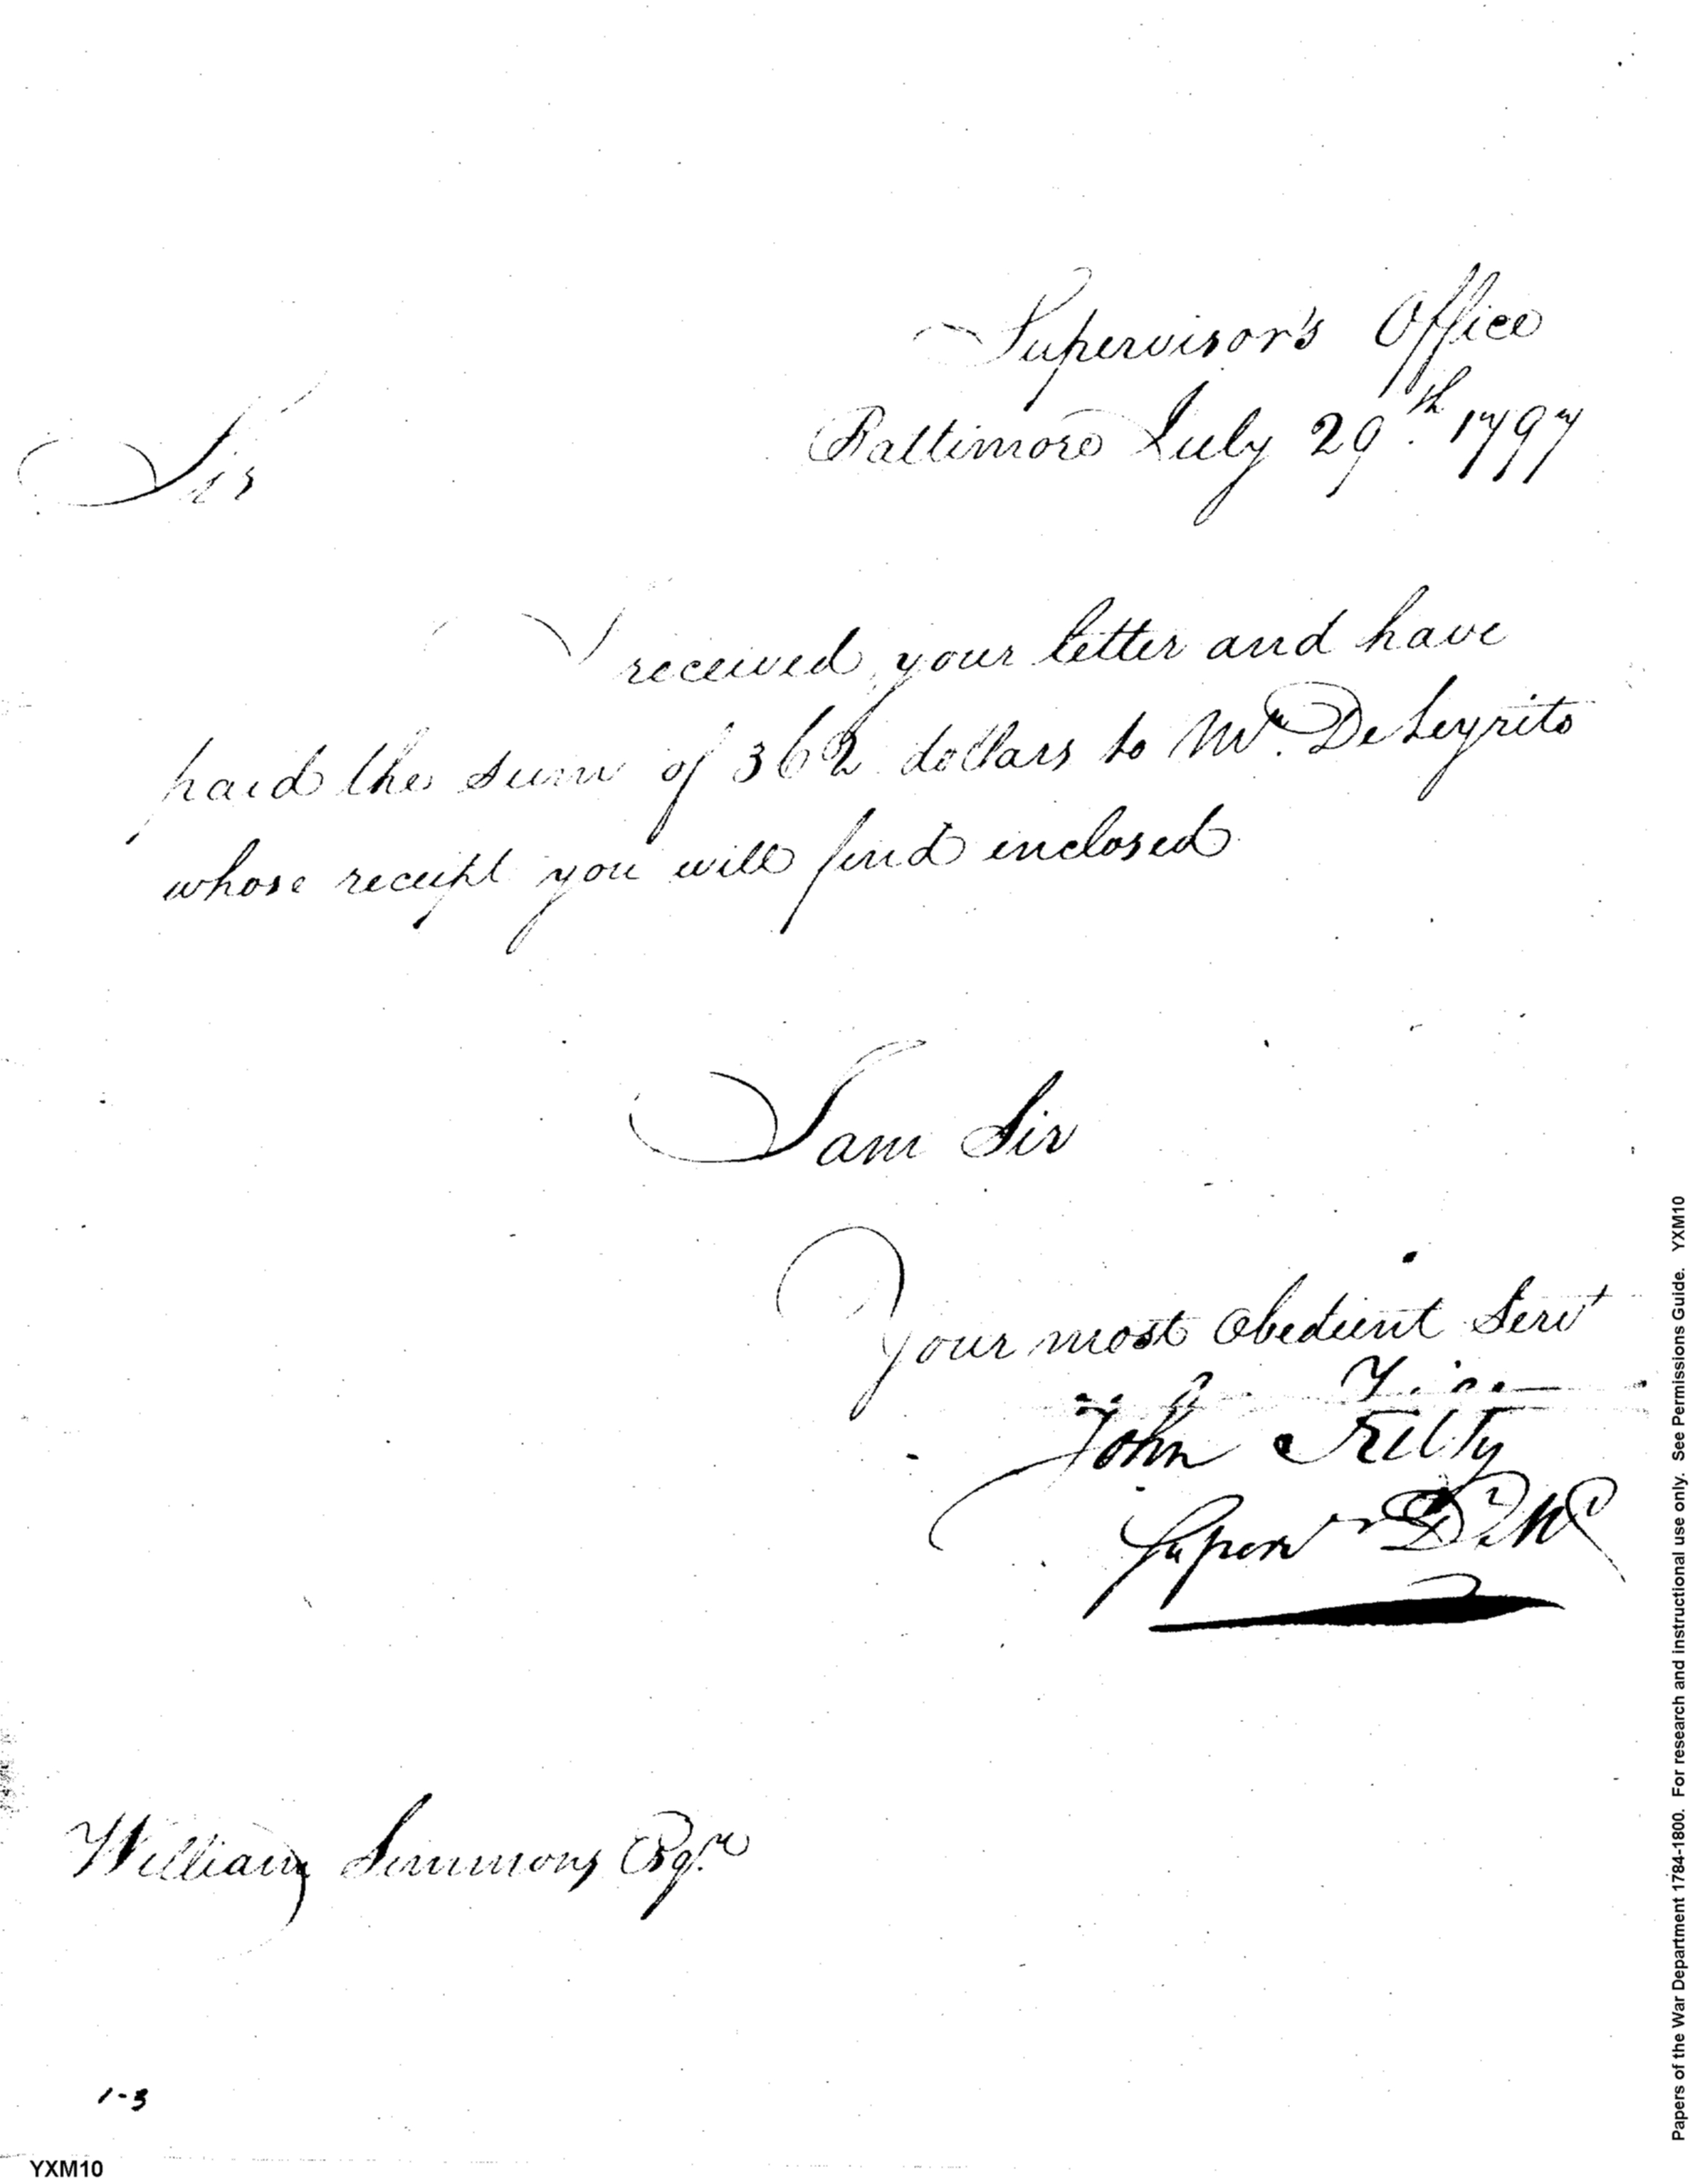 Supervisor's Office
Baltimore July 29th. 1797
Sir
I received your letter and have
paid the sum of 362 dollars to Mr. De Leyrits
whose receipt you will find inclosed
I am Sir
Your most Obedient Servt
John Kilty
Superv
William Simmons Esqr.
1-3
YXM10
Papers of the War Department 1784-1800. For research and instructional use only. See Permissions Guide. YXM10